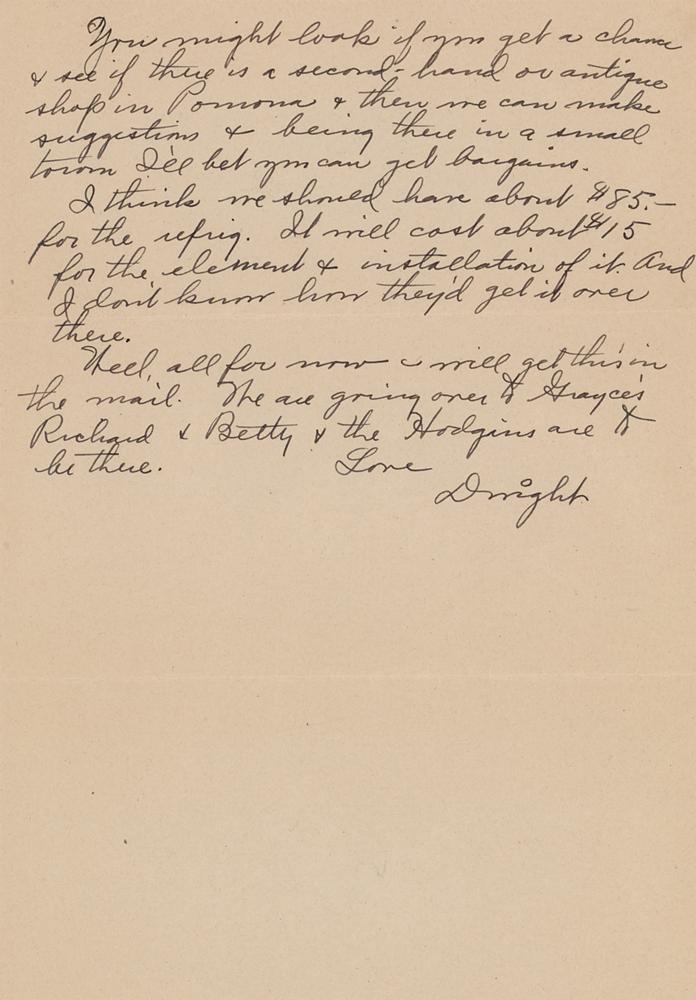 You might look if you get a chance
& see if there is a second-hand or antique
shop in Pomona & then we can make
suggestions & being there in a small
town I'll bet you can get bargains.
I think we should have about $85.-
for the refrig. It will cost about $15
for the element & installation of it. And
I don't know how they'd get it over
there.
Well, all for now & will get this in
the mail. We are going over to Grayce's
Richard & Betty & the Hodgins are to
be there. Love
Dwight